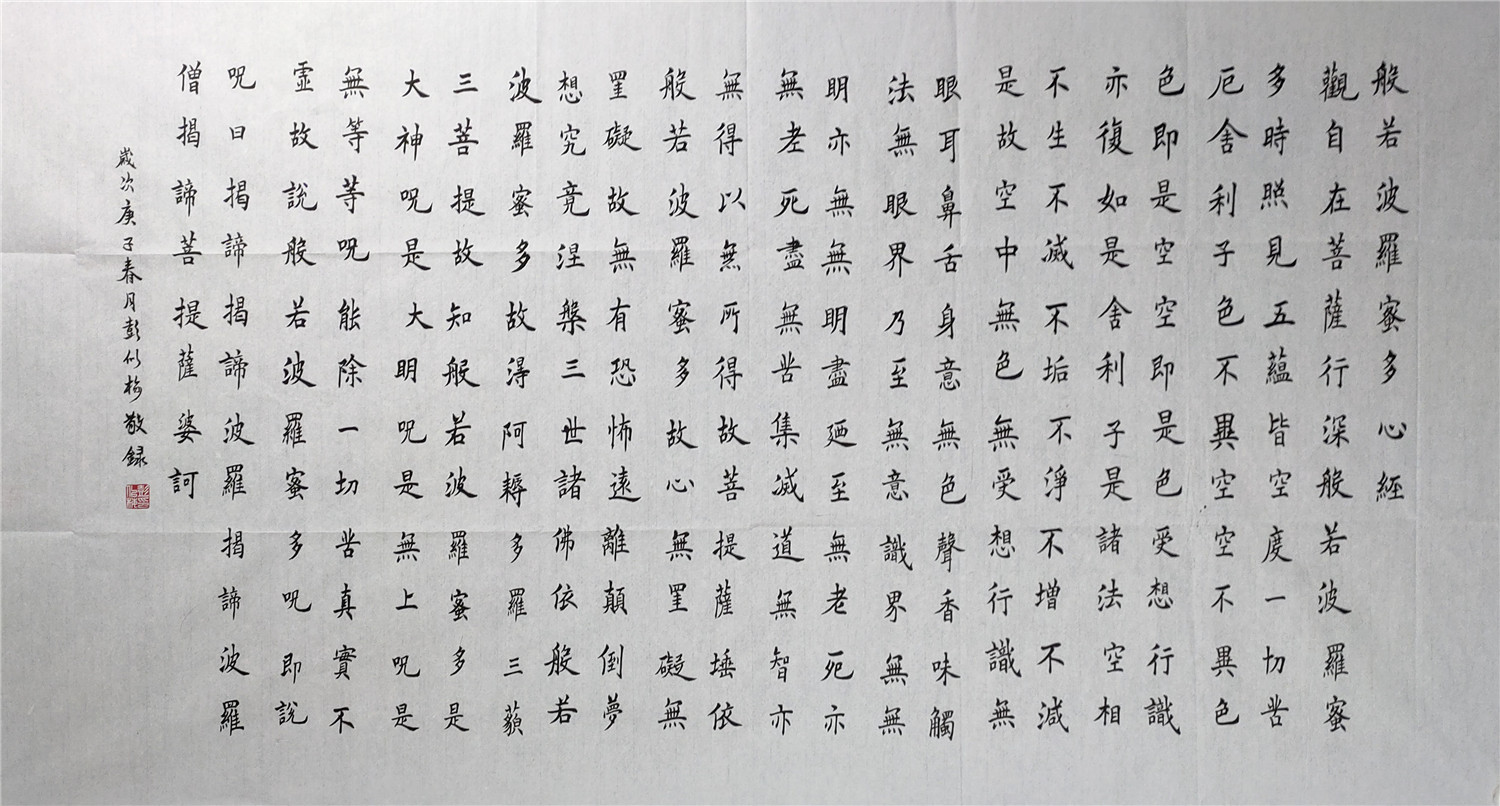 般若波羅蜜多心經
觀自在菩薩行深般若波羅蜜
多時照見五蘊皆空度一切苦
厄舍利子色不異空空不異色
色即是空空即是色受想行識
亦復如是舍利子是諸法空相
不生不滅不垢不淨不增不減
是故空中無色無受想行識無
眼耳鼻舌身意無色聲香味觸
法無眼界乃至無意識界無無
明亦無無明盡廼至無老死亦
無老死盡無苦集滅道無智亦
無得以無所得故菩提薩埵依
般若波羅蜜多故心無罣礙無
罣礙故無有恐怖遠離顛倒夢
想究竟涅槃三世諸佛依般若
波羅蜜多故得阿耨多羅三藐
三菩提故知般若波羅蜜多是
大神呪是大明呪是無上呪是
無等等呪能除一切苦真實不
虛故說般若波羅蜜多呪即說
呪曰揭諦揭諦波羅揭諦波羅
僧揭諦菩提薩婆訶
歲次庚子春月彭似梅敬録